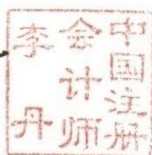 中国注册
会计师
李丹